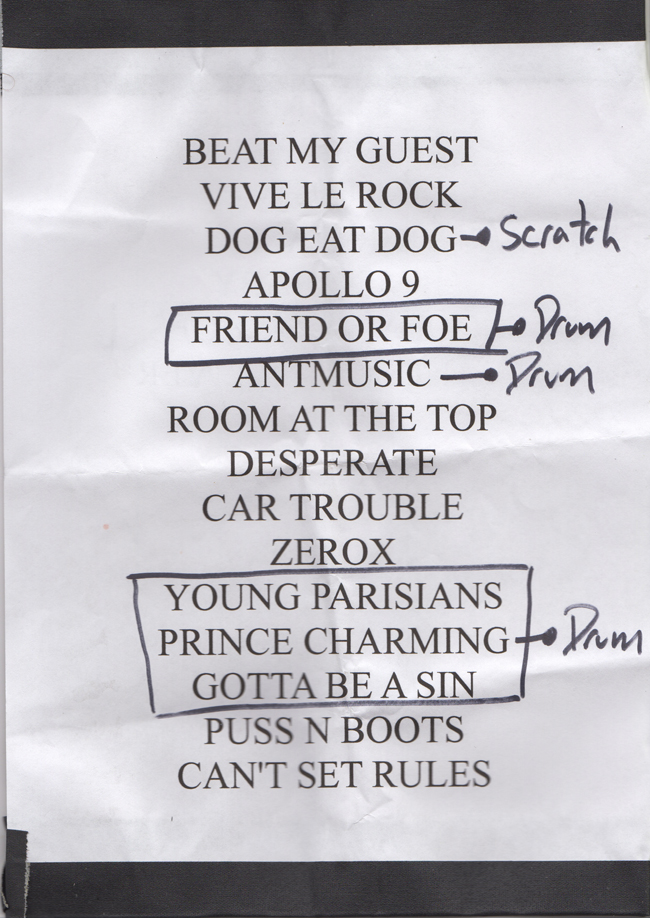 BEAT MY GUEST
VIVE LE ROCK
DOG EAT DOG Scratch
APOLLO 9
FRIEND OR FOE Drum
ANTMUSIC Drum
ROOM AT THE TOP
DESPERATE
CAR TROUBLE
ZEROX
YOUNG PARISIANS
PRINCE CHARMING Drum
GOTTA BE A SIN
PUSS N BOOTS
CAN'T SET RULES